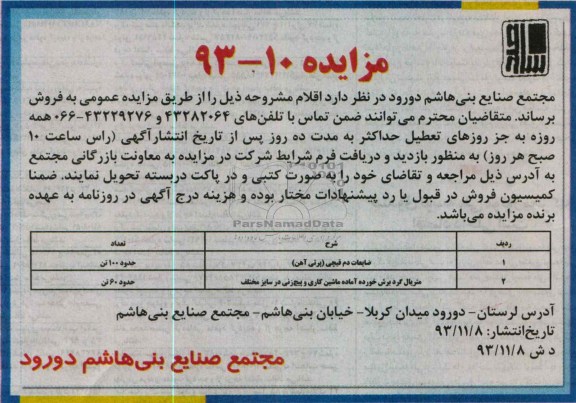 مزایده ۱۰-۹۳
مجتمع صنایع بنی‌هاشم دورود در نظر دارد اقلام مشروحه ذیل را از طریق مزایده عمومی به فروش
برساند. متقاضیان محترم می‌توانند ضمن تماس با تلفن‌های ۴۳۲۸۲۰۶۴ و ۴۳۲۲۹۲۷۶-۰۶۶ همه
روزه به جز روزهای تعطیل حداکثر به مدت ده روز پس از تاریخ انتشارآگهی (راس ساعت ۱۰
صبح هر روز) به منظور بازدید و دریافت فرم شرایط شرکت در مزایده به معاونت بازرگانی مجتمع
به آدرس ذیل مراجعه و تقاضای خود را به صورت کتبی و در پاکت دربسته تحویل نمایند. ضمنا
کمیسیون فروش در قبول یا رد پیشنهادات مختار بوده و هزینه درج آگهی در روزنامه به عهده
برنده مزایده می‌باشد.
ParsNamadData
ردیف شرح تعداد
۱ ضایعات دم قیچی (پرتی آهن) حدود ۱۰۰ تن
۲ متریال گرد برش خورده آماده ماشین کاری و پیچ‌زنی در سایز مختلف حدود ۶۰ تن
آدرس لرستان- دورود میدان کربلا- خیابان بنی‌هاشم- مجتمع صنایع بنی‌هاشم
تاریخ‌انتشار: ۹۳/۱۱/۸
د ش ۹۳/۱۱/۸
مجتمع صنایع بنی‌هاشم دورود